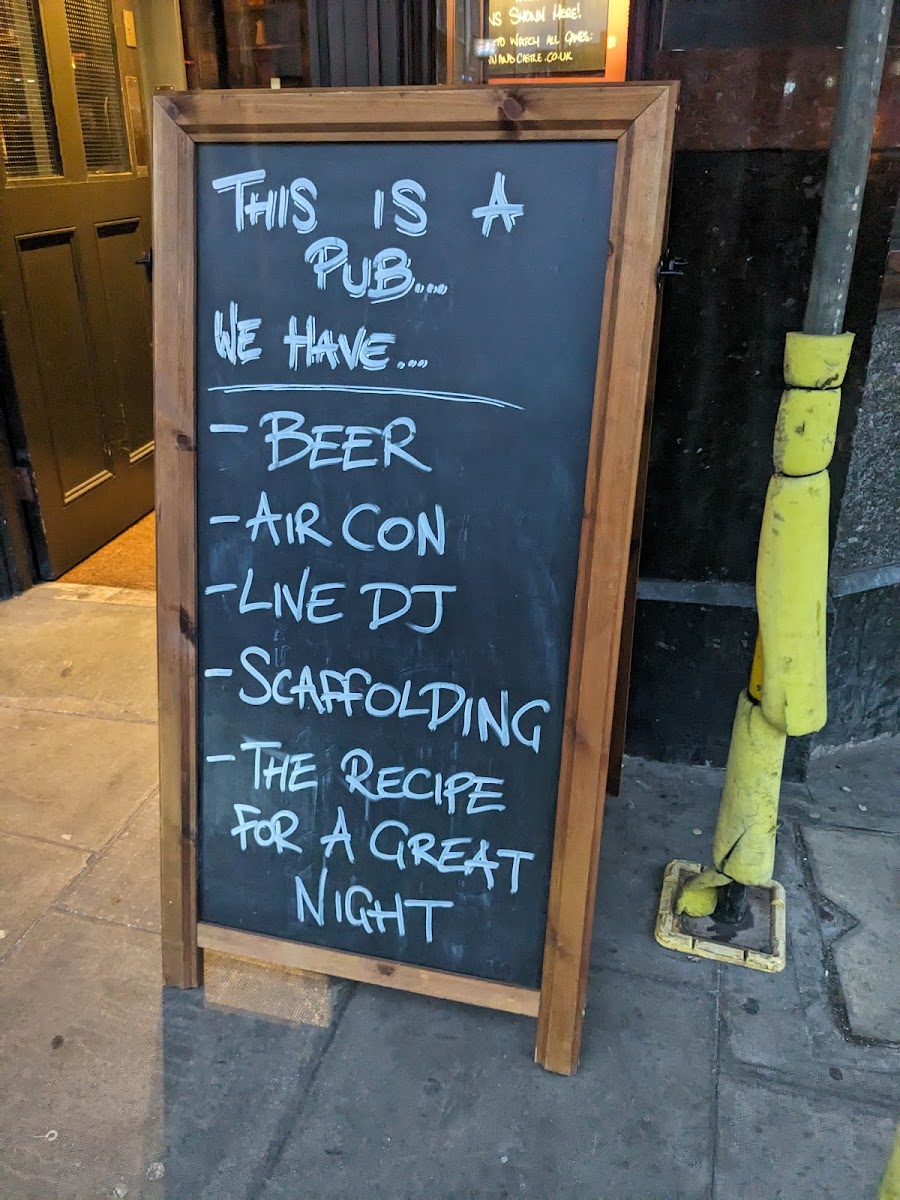 VS SHOWN HERE!
TO WATCH ALL GAMES:
NANDCASTLE.CO.UK
THIS IS A
PUB...
WE HAVE...
- BEER
- AIR CON
- LIVE DJ
- SCAFFOLDING
- THE RECIPE
FOR A GREAT
NIGHT